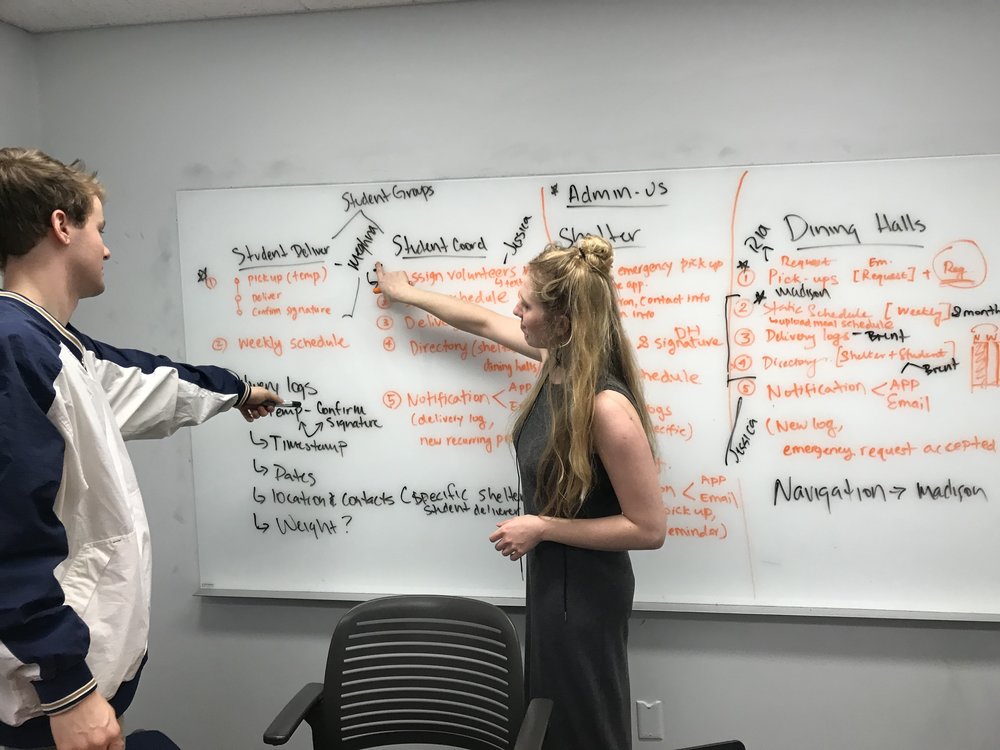 Student Groups
Student Deliver
① pickup (temp)
Deliver
confirm signature
② weekly schedule
logs
Temp - Confirm
Signature
↳ Timestamp
↳ Dates
↳ location & contacts (specific shelter
student deliverer
↳ Weight?
Student Coord
- Jessica
Assign volunteers
schedule
③
④ Directory (shelter
dining halls
⑤ Notification < App
(delivery log,
new recurring
* Admin - us
Shelter
emergency pick up
app
contact info
info
DH
& signature
schedule
logs
< App
Email
pick up,
reminder)
Dining Halls
Ria
* Request Em.
① Pick-ups [Request] + Reg
* madison
② Static Schedule [weekly] & month
upload meal schedule
③ Delivery logs - Brent
④ Directory [Shelter + Student]
Brent
⑤ Notification < App
Email
Jessica
(New log,
emergency request accepted
Navigation → madison
N W